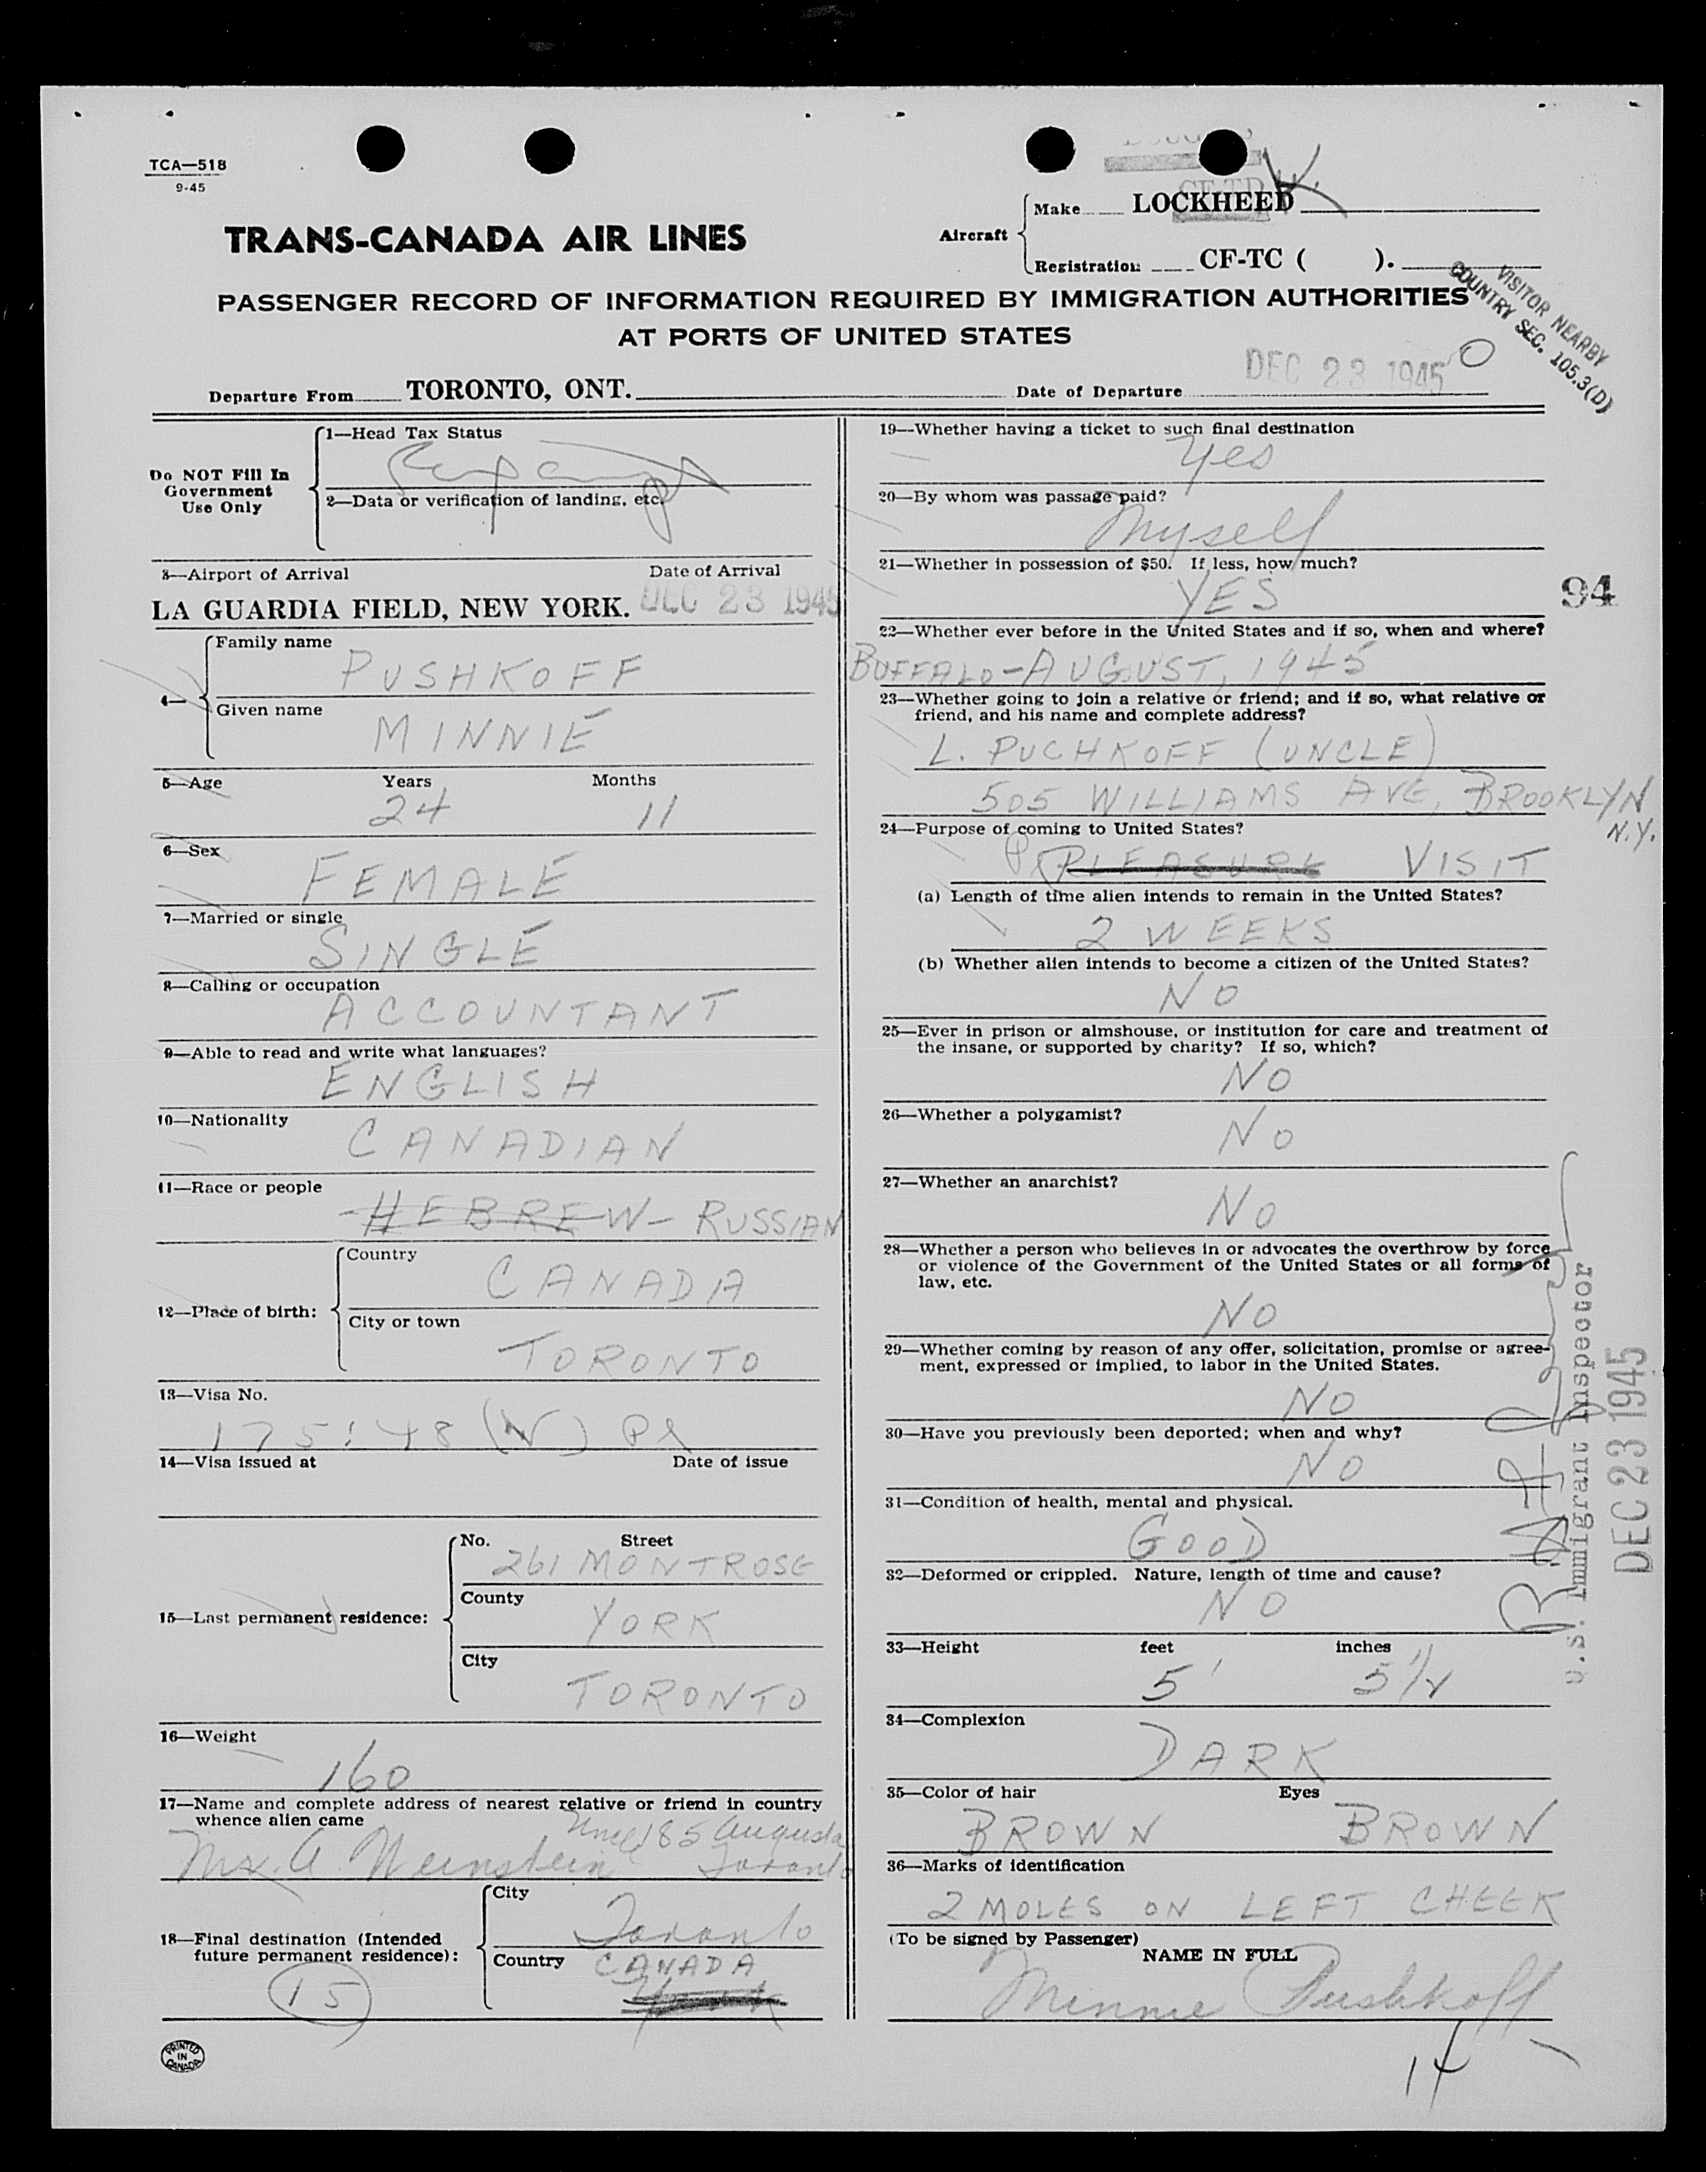 TCA—518
9-45
TRANS-CANADA AIR LINES
Aircraft
Make LOCKHEED
Registration CF-TC ( ).
PASSENGER RECORD OF INFORMATION REQUIRED BY IMMIGRATION AUTHORITIES
AT PORTS OF UNITED STATES
VISITOR NEARBY
COUNTRY SEC. 105.3(D)
Departure From TORONTO, ONT. Date of Departure DEC 23 1945
Do NOT Fill In
Government
Use Only
1—Head Tax Status
2—Data or verification of landing, etc.
3—Airport of Arrival Date of Arrival
LA GUARDIA FIELD, NEW YORK. DEC 23 1945
4—
Family name
PUSHKOFF
Given name
MINNIE
5—Age Years Months
24 11
6—Sex
FEMALE
7—Married or single
SINGLE
8—Calling or occupation
ACCOUNTANT
9—Able to read and write what languages?
ENGLISH
10—Nationality
CANADIAN
11—Race or people
HEBREW - RUSSIAN
12—Place of birth:
Country
CANADA
City or town
TORONTO
13—Visa No.
175148 (N)
14—Visa issued at Date of issue
15—Last permanent residence:
No. Street
261 MONTROSE
County
YORK
City
TORONTO
16—Weight
160
17—Name and complete address of nearest relative or friend in country
whence alien came
Uncle 185 Augusta
Mr. A. Weinstein Toronto
18—Final destination (Intended
future permanent residence):
City
Toronto
Country CANADA
15
PRINTED
IN
CANADA
19—Whether having a ticket to such final destination
Yes
20—By whom was passage paid?
Myself
21—Whether in possession of $50. If less, how much?
YES
94
22—Whether ever before in the United States and if so, when and where?
BUFFALO - AUGUST, 1945
23—Whether going to join a relative or friend; and if so, what relative or
friend, and his name and complete address?
L. PUCHKOFF (UNCLE)
505 WILLIAMS AVE, BROOKLYN
N.Y.
24—Purpose of coming to United States?
PLEASURE VISIT
(a) Length of time alien intends to remain in the United States?
2 WEEKS
(b) Whether alien intends to become a citizen of the United States?
NO
25—Ever in prison or almshouse, or institution for care and treatment of
the insane, or supported by charity? If so, which?
NO
26—Whether a polygamist?
NO
27—Whether an anarchist?
NO
28—Whether a person who believes in or advocates the overthrow by force
or violence of the Government of the United States or all forms of
law, etc.
NO
29—Whether coming by reason of any offer, solicitation, promise or agree-
ment, expressed or implied, to labor in the United States.
NO
30—Have you previously been deported; when and why?
NO
31—Condition of health, mental and physical.
GOOD
32—Deformed or crippled. Nature, length of time and cause?
NO
33—Height feet inches
5' 5 1/2
34—Complexion
DARK
35—Color of hair Eyes
BROWN BROWN
36—Marks of identification
2 MOLES ON LEFT CHEEK
(To be signed by Passenger)
NAME IN FULL
Minnie Pushkoff
14
U.S. Immigrant Inspector
DEC 23 1945